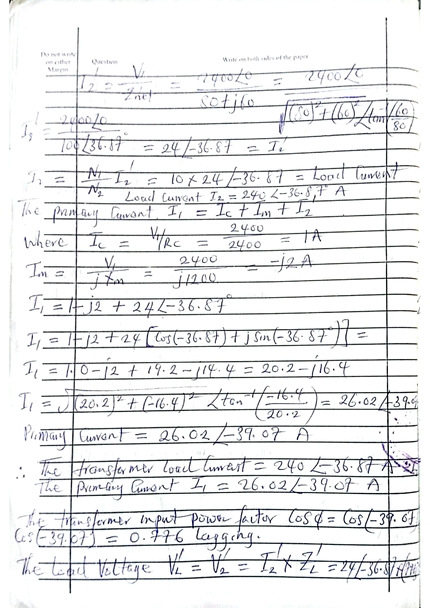 Do not write on either Margin
Question
Write on both sides of the paper
I₂' = V₁/Znet = 2400∠0/80+j60 = 2400∠0/√(80)²+(60)² ∠tan⁻¹(60/80)
I₂' = 2400∠0/100∠36.87° = 24∠-36.87 = I₂'
I₂ = N₁/N₂ I₂' = 10 × 24∠-36.87 = Load Current
Load Current I₂ = 240∠-36.87 A
The primary Current, I₁ = Ic + Im + I₂
Where Ic = V₁/Rc = 2400/2400 = 1A
Im = V₁/jXm = 2400/j1200 = -j2A
I₁ = 1-j2 + 24∠-36.87°
I₁ = 1-j2 + 24[Cos(-36.87) + j Sin(-36.87°)] =
I₁ = 1.0-j2 + 19.2-j14.4 = 20.2-j16.4
I₁ = √(20.2)² + (-16.4)² ∠tan⁻¹(-16.4/20.2) = 26.02∠-39.0
Primary Current = 26.02∠-39.07 A
∴ The transformer load Current = 240∠-36.87 A
The Primary Current I₁ = 26.02∠-39.07 A
The transformer input power factor Cosϕ = Cos(-39.07
Cos(-39.07) = 0.776 lagging.
The Load Voltage V_L' = V₂' = I₂' × Z_L' = 24∠-36.87